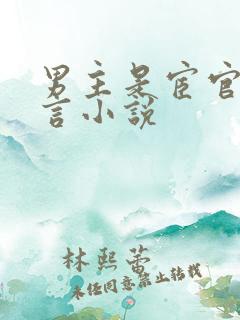 男主是宦官
言小说
林熙蕾
未经同意禁止转载